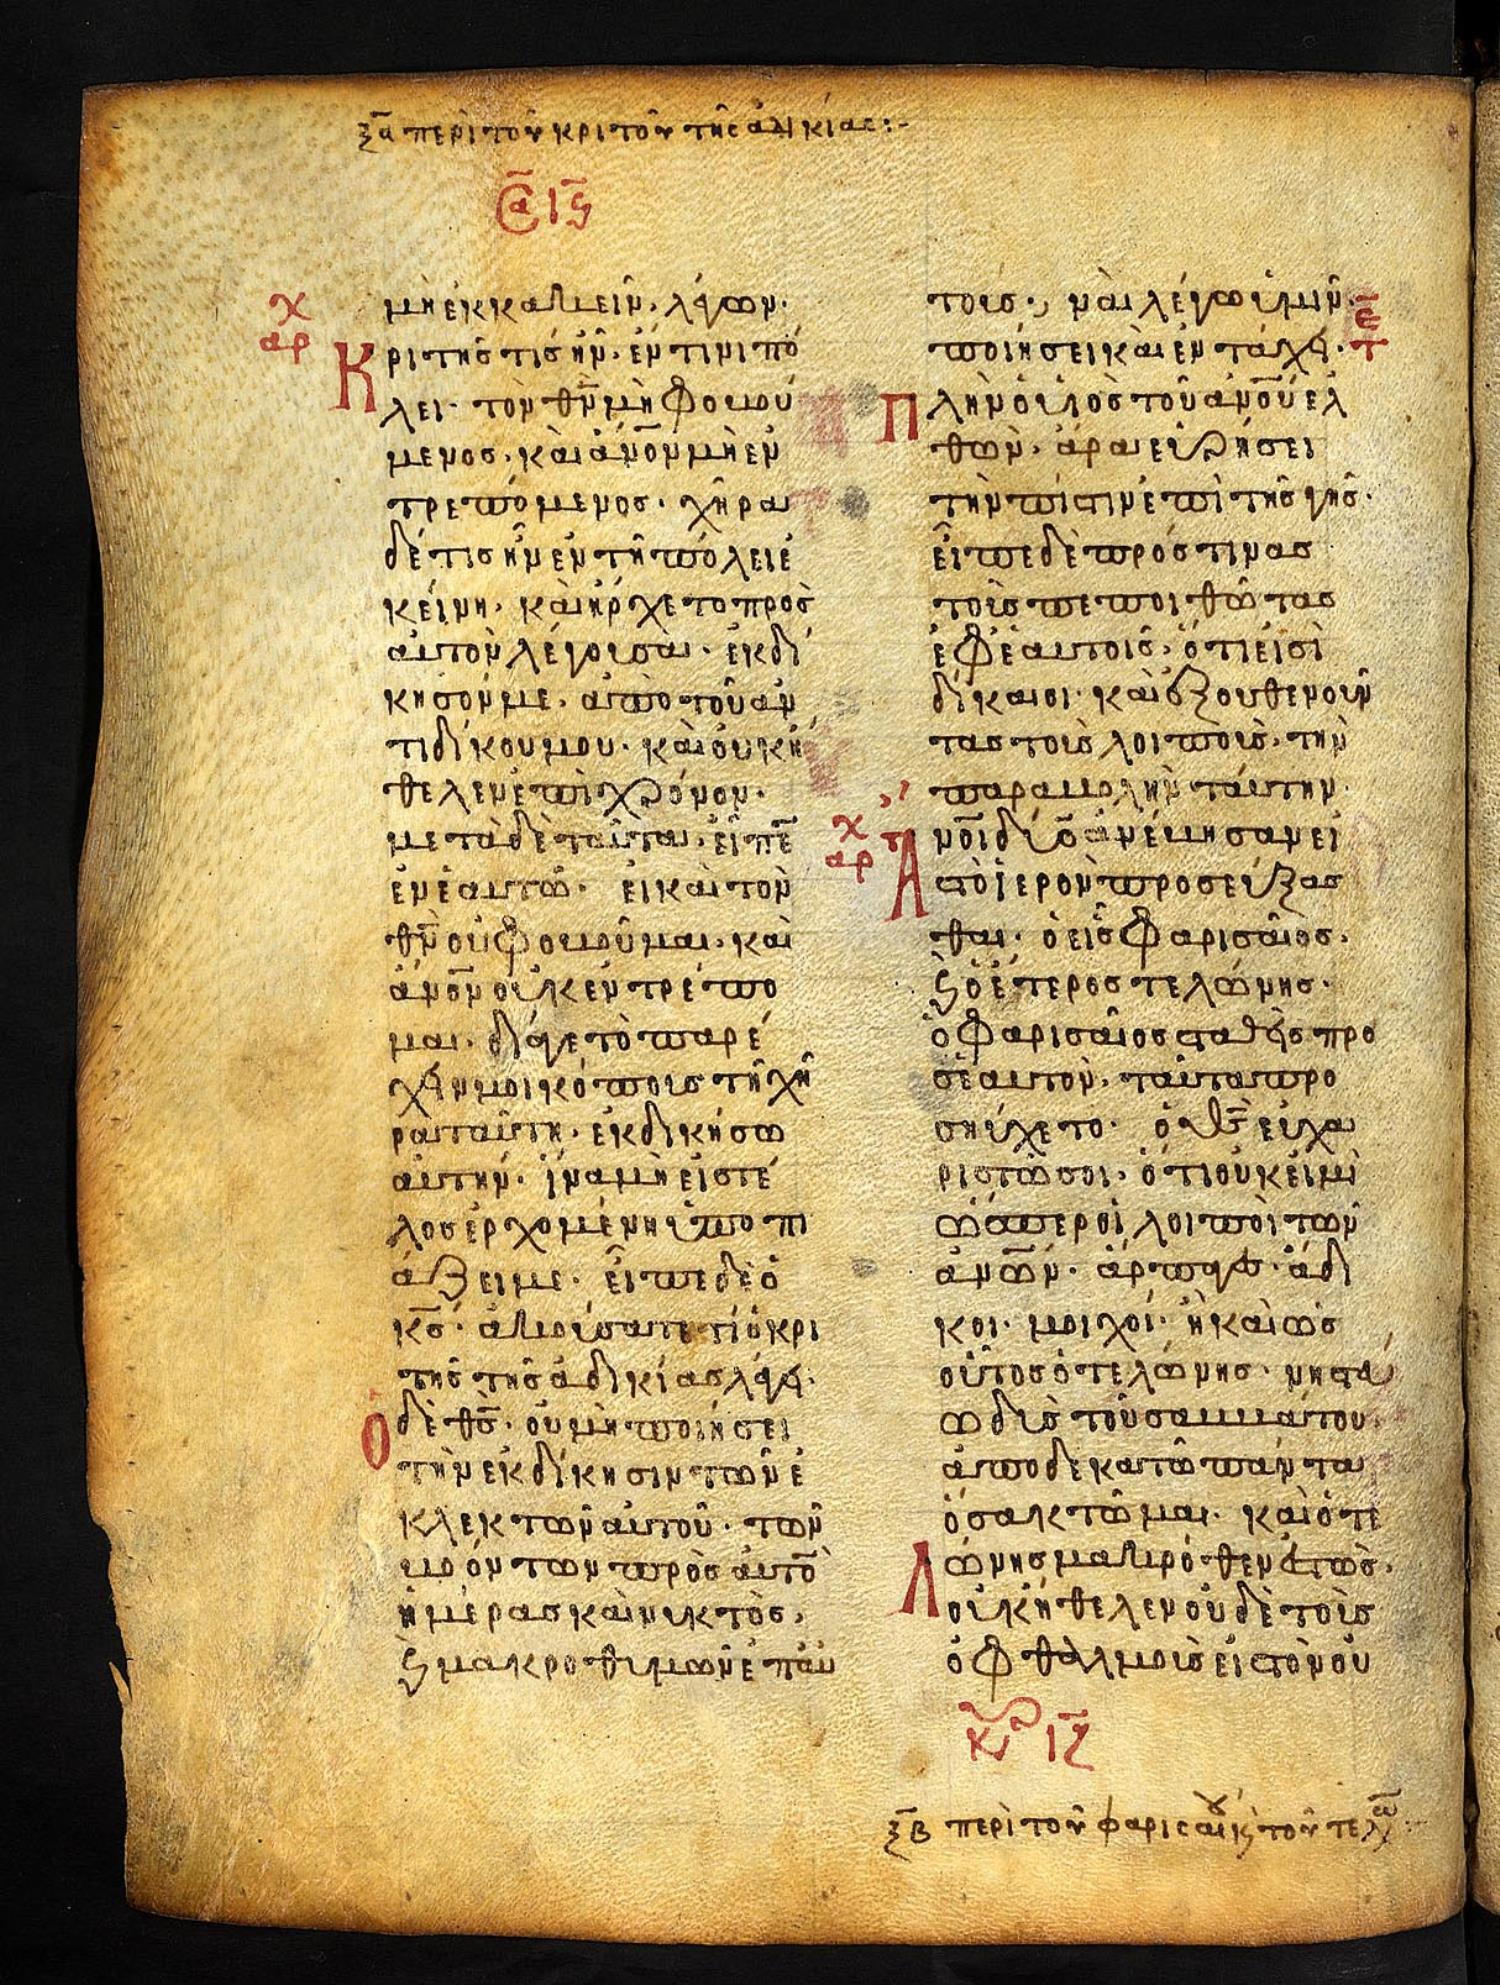 ξα περὶ τοῦ κριτοῦ τῆς ἀδικίας:-
Σα ιϛ
χ
αρ
μὴ ἐκκακεῖν. λέγων.
Κριτής τις ἦν. ἔν τινι πό
λει. τὸν θν μὴ φοβού
μενος. καὶ ἀνον μὴ ἐν
τρεπόμενος. χήρα
δέ τις ἦν ἐν τῆ πόλει ἐ
κείνη. καὶ ἤρχετο πρὸς
αὐτὸν λέγουσα. ἐκδί
κησόν με. ἀπὸ τοῦ ἀν
τιδίκου μου. καὶ οὐκ ἤ
θελεν ἐπὶ χρόνον.
μετὰ δὲ ταῦτα. εἶπε
ἐν ἑαυτῶ. εἰ καὶ τὸν
θν οὐ φοβοῦμαι. καὶ
ἀνον οὐκ ἐντρέπο
μαι. διά γε τὸ παρέ
χειν μοι κόπους τὴ χή
ρα ταύτη. ἐκδικήσω
αὐτήν. ἵνα μὴ εἰς τέ
λος ἐρχομένη ὑποπι
άζει με. εἶπε δὲ ὁ
κς. ἀκούσατε τί ὁ κρι
τὴς τῆς ἀδικίας λέγει.
Ὁ δὲ θς. οὐ μὴ ποιήσει
τὴν ἐκδίκησιν τῶν ἐ
κλεκτῶν αὐτοῦ. τῶν
βοόντων πρὸς αὐτὸ
ἡμέρας καὶ νυκτὸς,
ϗ μακροθυμῶν ἐπ αὐ
τοῖς., ναὶ λέγω ὑμῖν.
ποιήσει καὶ ἐν τάχει. τε
Πλὴν ὁ υἱὸς τοῦ ἀνου ἐλ
θὼν. ἄρα εὑρήσει
τὴν πίστιν ἐπὶ τῆς γῆς.
εἶπε δὲ πρός τινας
τοὺς πεποιθότας
ἐφ ἑαυτοῖς. ὅτι εἰσὶ
δίκαιοι. καὶ ἐξουθενοῦν
τας τοὺς λοιποὺς. τὴν
παραβολὴν ταύτην.
χ
αρ
Ἀνοι δύο ἀνέβησαν εἰ
ς τὸ ἱερὸν προσεύξας
θαι. ὁ εἷς φαρισαῖος.
ϗ ὁ ἕτερος τελώνης.
ὁ φαρισαῖος σταθεὶς προ
ς ἑαυτὸν. ταῦτα προ
σηύχετο. ὁ θς εὐχα
ριστῶ σοι. ὅτι οὐκ εἰμὶ
ὥσπερ οἱ λοιποὶ τῶν
ἀνων. ἅρπαγες. ἄδι
κοι. μοιχοί. ἢ καὶ ὡς
οὗτος ὁ τελώνης. νηστεύ
ω δὶς τοῦ σαββάτου.
ἀποδεκατῶ πάντα
ὅσα κτῶμαι. καὶ ὁ τε
λώνης μακρόθεν ἑστὼς.
οὐκ ἤθελεν οὐδὲ τοὺς
ὀφθαλμοὺς εἰς τὸν οὐ
Κυ ιζ
ξβ περὶ τοῦ φαρισαίου ϗ τοῦ τελω